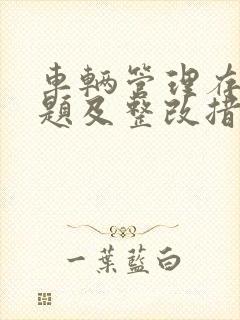 车辆管理存
题及整改措
一葉藍白